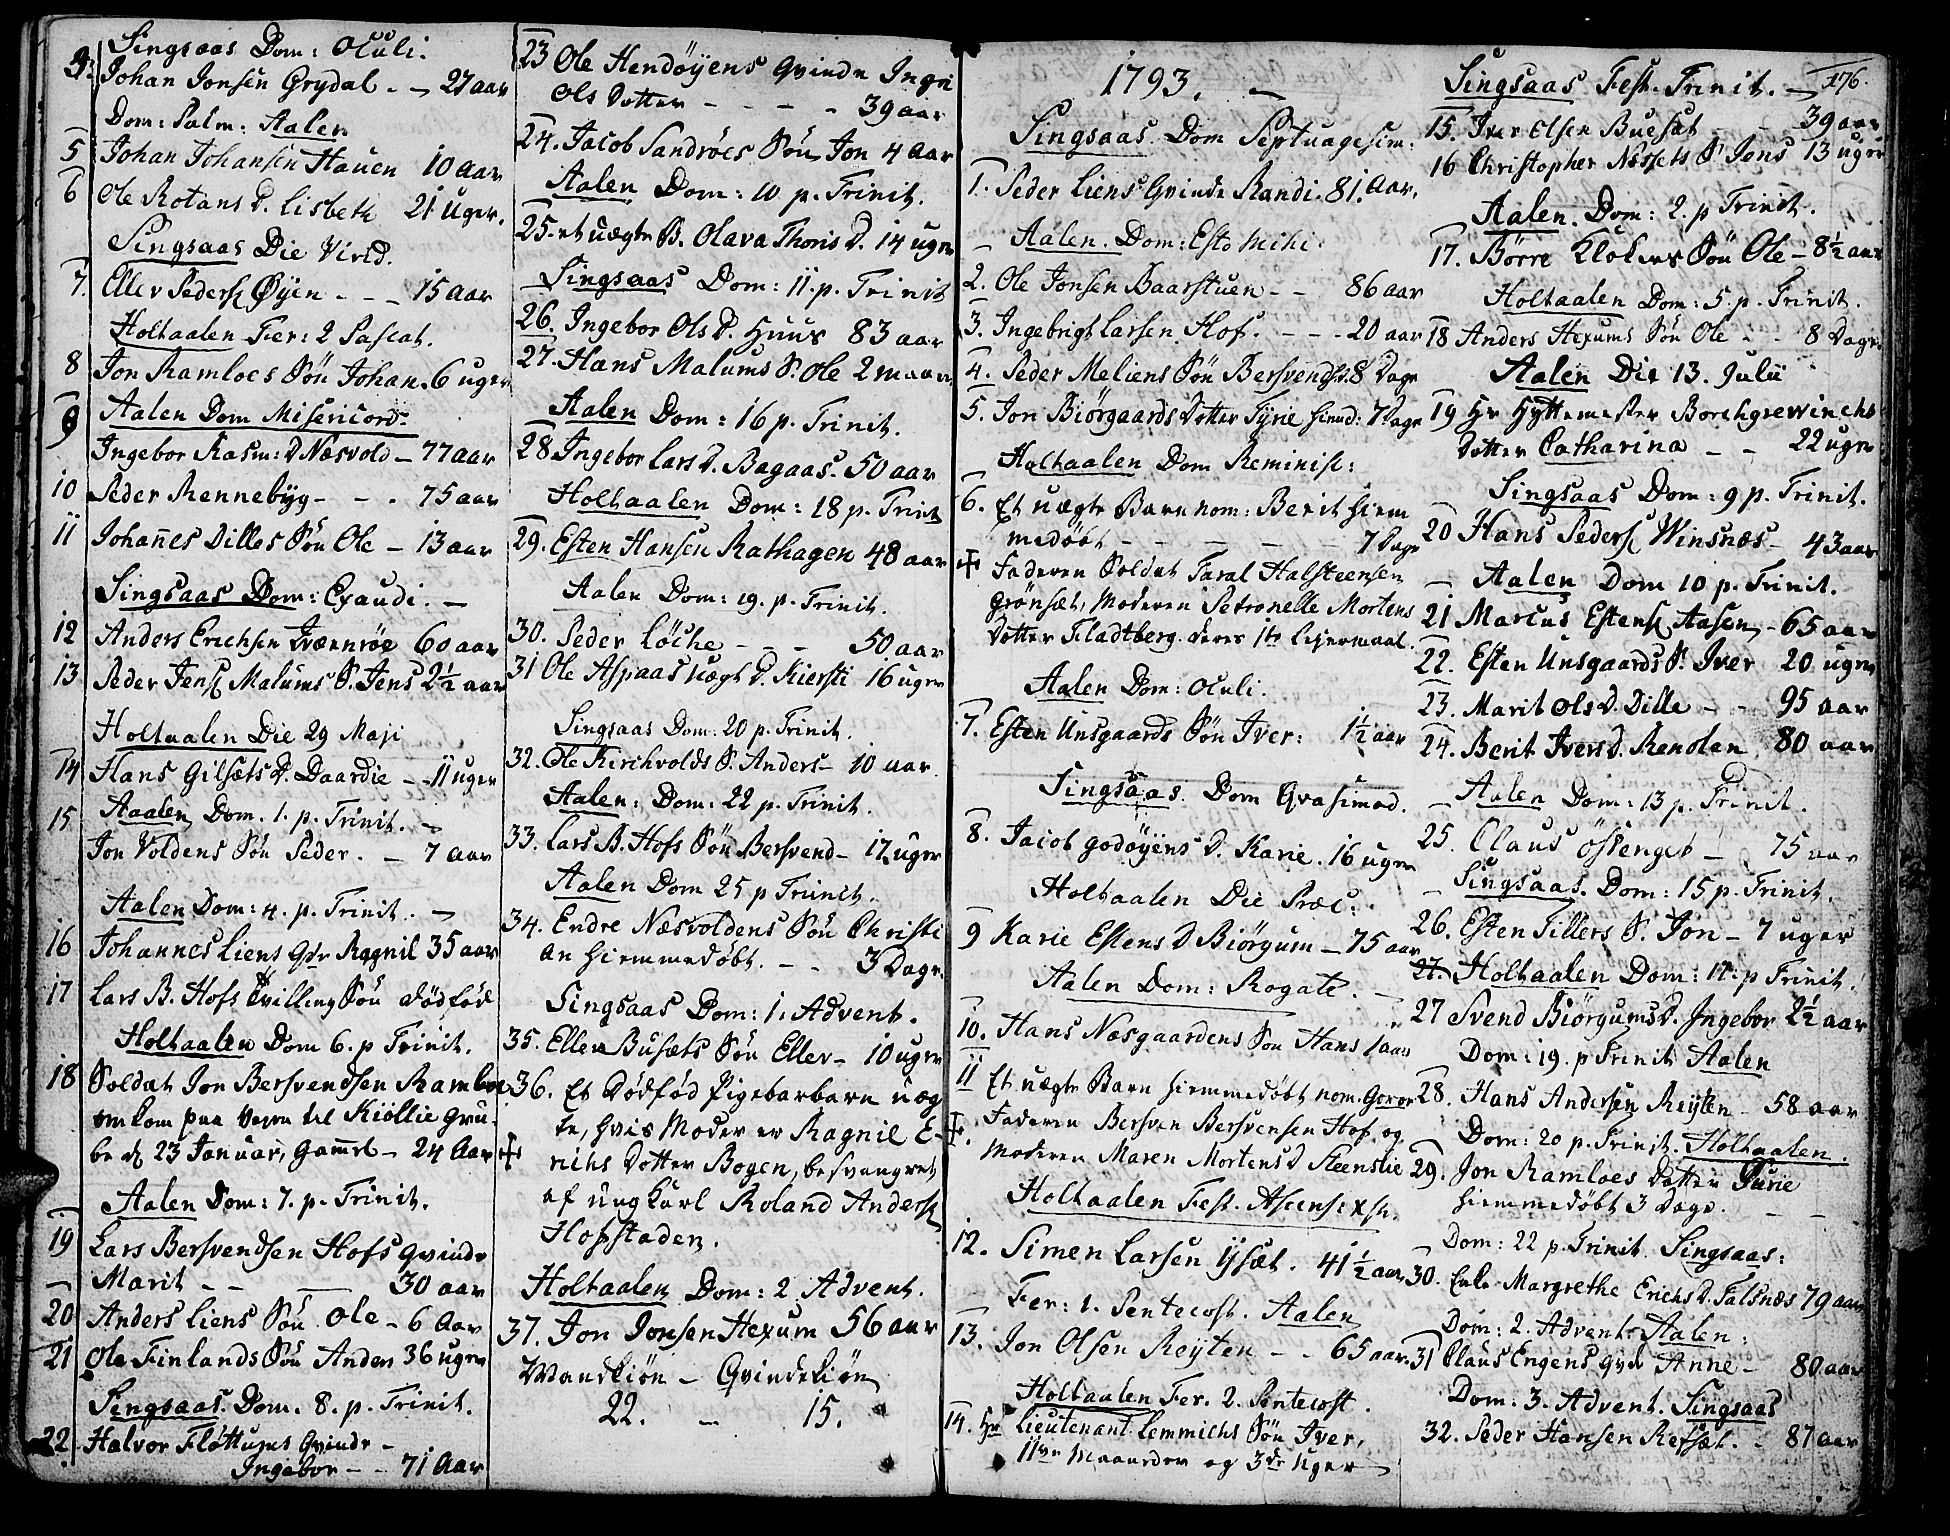 Singsaas Dom: Oculi.
Johan Jonsen Grydal - - 27 aar
Dom: Palm: Aalen
5 Johan Johansen Hauen 10 aar
6 Ole Rotans D. Lisbeth 21 Uger.
Singsaas Die Virid.
7. Eller Peders Øyen - - - 15 aar
Holtaalen Fer: 2 Pascat.
8 Jon Ramloes Søn Johan. 6 uger
Aalen Dom Misericord-
9 Ingebor Rasm: D Næsvold - 77 aar
10 Peder Rennebyg - - - 75 aar
11 Johannes Dilles Søn Ole - 13 aar
Singsaas Dom: Exaudi. -
12 Anders Erichsen Kværnrøe 60 aar
13 Peder Jens Malums S. Jens 2½ aar
Holtaalen Die 29 Maji
14 Hans Gilsets D. Daardie - 11 uger
Aaalen Dom. 1. p. Trinit. -
15 Jon Voldens Søn Peder. - 7 aar
Aalen Dom: 4. p. Trinit. -
16 Johannes Liens Qde Ragnil 35 aar
17 Lars B. Hofs Tvilling Søn dødfød
Holtaalen Dom 6. p Trinit.
18 Soldat Jon Bersvendsen Ramloe
omkom paa veyen til Kiøllie Gru-
be d 23 Januar, Gaml - 24 Aar
Aalen Dom: 7. p. Trinit.
19 Lars Bersvendsen Hofs Qvinde
Marit - - 30 aar
20 Anders Liens Søn Ole - 6 Aar
21 Ole Finlands Søn Anders 36 uger
Singsaas. Dom. 8. p. Trinit.
22. Halvor Fløttums Qvinde -
Ingebor - - 71 Aar
23 Ole Hendøyens Qvinde Ingri
Ols Dotter - - - - 39 aar
24. Jacob Sandrøes Søn Jon 4 Aar
Aalen Dom: 10 p. Trinit.
25. et uægte B. Olava Thoris D. 14 uger
Singsaas Dom: 11. p. Trinit
26. Ingebor Ols D. Huus 83 aar
27. Hans Malums S. Ole 2 maan
Aalen Dom: 16 p. Trinit.
28 Ingebor Lars D. Bagaas. 50 aar
Holtaalen Dom: 18 p. Trinit
29. Esten Hansen Rathagen 48 aar
Aalen Dom: 19. p. Trinit.
30. Peder Løche - - - 50 aar
31 Ole Aspaas uægt D. Kiersti 16 uger
Singsaas Dom: 20 p. Trinit.
32. Ole Kirchvolds S. Anders - 10 aar.
Aalen: Dom: 22 p. Trinit.
33. Lars B. Hofs Søn Bersvend - 17 uger
Aalen Dom 25 p Trinit.
34. Endre Næsvoldens Søn Christi
an hiemmedøbt. - - 3 Dage.
Singsaas Dom: 1. Advent.
35. Ellen Busæts Søn Eller - 10 uger
36. Et Dødfød Pigebarbarn uæg
te, hvis Moder er Ragnil E-
richs Dotter Bogen, besvangret
af ung Karl Roland Anders
Hofstaden.
Holtaalen Dom: 2 Advent.
37. Jon Jonsen Hexum 56 aar
Mandkiøn - Qvindekiøn
22. - 15.
1793. -
Singsaas. Dom Septuagesim:
1. Peder Liens Qvinde Randi. 81. Aar.
Aalen. Dom: Esto Mihi.
2. Ole Jonsen Baarstuen - - 86 aar
3. Ingebrigt Larsen Hof. - - - 20 aar
4. Peder Meliens Søn Bersvend 8 Dage
5. Jon Biørgaards Dotter Tyrie hiemd: 7 Dage
Holtaalen Dom Reminisc:
6. Et uægte Barn nom: Berit hiem
medøbt - - - - - 7 Dage
Faderen Soldat Taral Halsteensen
Grønset, Moderen Petronelle Mortens
Dotter Fladtberg. deres 1te Leyermaal.
Aalen Dom: Oculi.
7. Esten Unsgaards Søn Iver: 1½ aar
Singsaas. Dom Qvasimod.
8. Jacob Godøyens D. Karie. 16 uger
Holtaalen Die Præc:
9 Karie Estens D Biørgum - 75 aar
Aalen Dom: Rogate. -
10. Hans Næsgaardens Søn Hans 1 aar
11 Et uægte Barn hiemmedøbt nom. Goror
Faderen Bersven Bersvensen Hof, og
Moderen Maren Mortens D Steenslie
Holtaalen Fest. Ascens: xsti.
12. Simen Larsen Ysæt. 41½ aar
Fer: 1. Pentecost. Aalen
13. Jon Olsen Reyten - - 65 aar.
Holtaalen Fer. 2. Pentecost.
14. Hr Lieutenant Lemmichs Søn Iver,
11ve Maaneder og 3de Uger
176.
Singsaas Fest. Trinit. -
15. Iver Olsen Buesæt - - 39 aar
16 Christopher Næssets S. Jens 13 uger
Aalen. Dom: 2. p Trinit.
17. Børre Klokers Søn Ole - 8½ aar
Holtaalen Dom: 5. p. Trinit.
18 Anders Hexums Søn Ole - - 8 Dage
Aalen Die 13. Julii
19 Hr Hyttemester Borchgrewinchs
Dotter Catharina - - 22 uger
Singsaas Dom: 9 p. Trinit.
20 Hans Peders Winsnæs - 43 aar
Aalen Dom 10 p. Trinit.
21 Marcus Estens Aasen - 65 aar
22. Esten Unsgaards S. Iver 20 uger
23. Marit Ols D. Dille - - 95 aar
24. Berit Ivers D. Renolen 80 aar
Aalen Dom: 13 p. Trinit.
25. Claus Østenget - 75 aar
Singsaas. Dom: 15 p. Trinit.
26. Esten Tillers S. Jon - 7 uger
27. Holtaalen Dom: 17. p Trinit.
27 Svend Biørgums D. Ingebor 2½ aar
Dom: 19. p Trinit Aalen
28. Hans Andersen Reyten - 58 aar
Dom: 20 p. Trinit. Holtaalen.
29. Jon Ramloes Dotter Turie
hiemmedøbt 3 Dage. - -
Dom: 22 p. Trinit. Singsaas:
30. Enke Margrethe Erichs D. Talsnæs 79 aar
Dom: 2. Advent. Aalen:
31 Claus Engens Qde Anne - 80 aar
Dom: 3. Advent. Singsaas
32. Peder Hansen Refsæt. - 87 aar